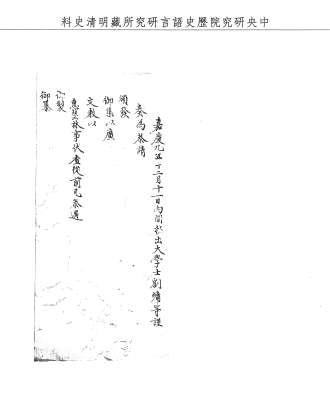 中央研究院歷史語言研究所藏明清史料
嘉慶九年十二月十一日內閣抄出大學士劉墉等謹
奏為恭請
頒發
御集以廣
文教以
惠藝林事伏查從前凡恭遇
御纂